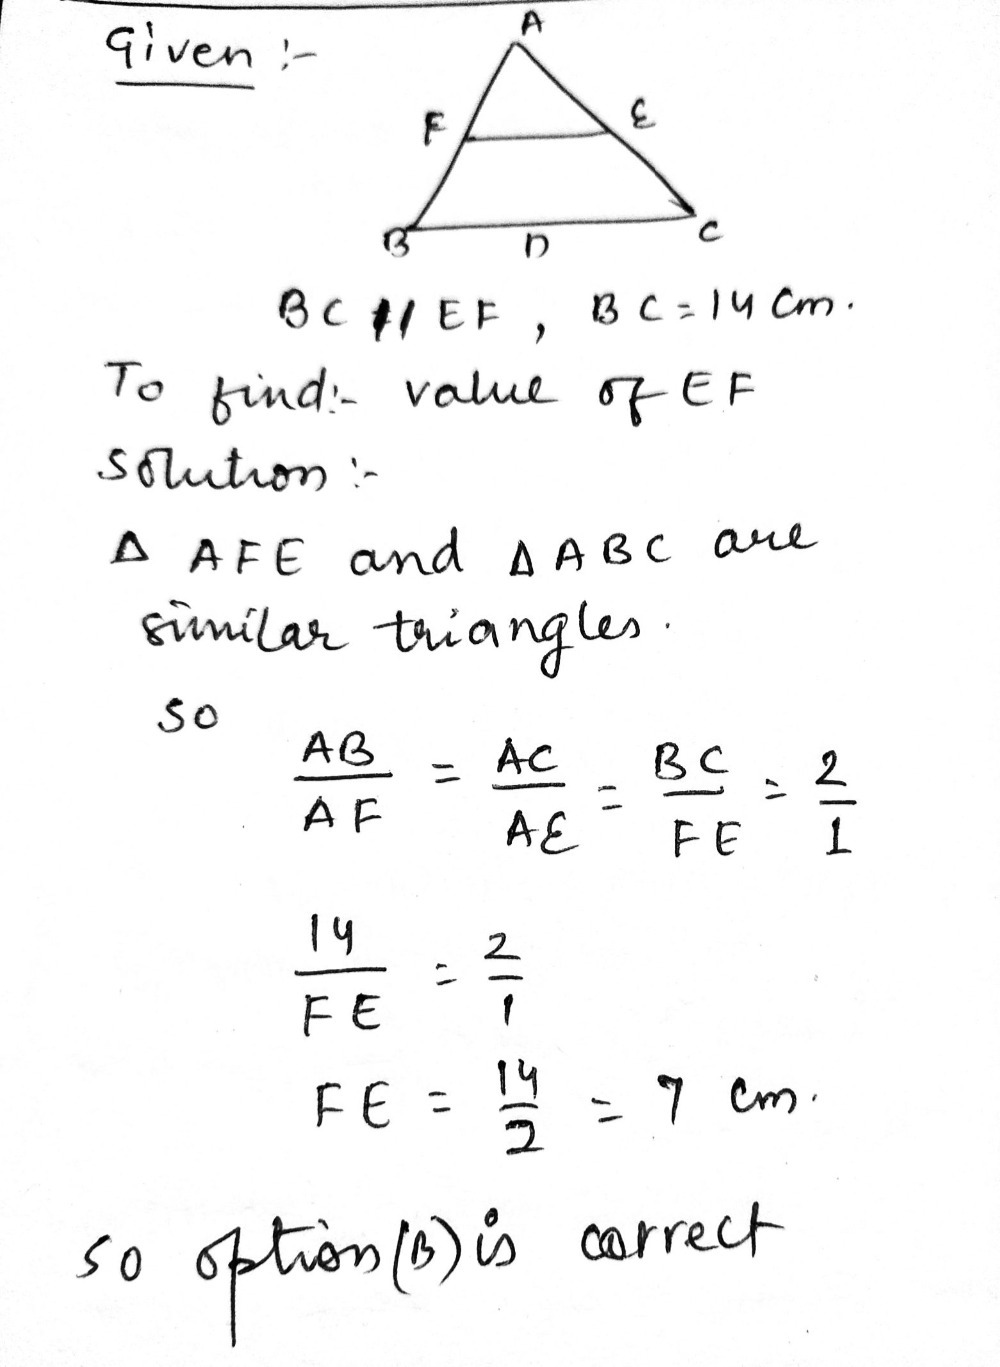 Given :-
A
F E
B D C
BC // EF , BC = 14 cm.
To find:- value of EF
Solution :-
Δ AFE and Δ ABC are
similar triangles.
so
AB/AF = AC/AE = BC/FE = 2/1
14/FE = 2/1
FE = 14/2 = 7 cm.
so option (B) is correct